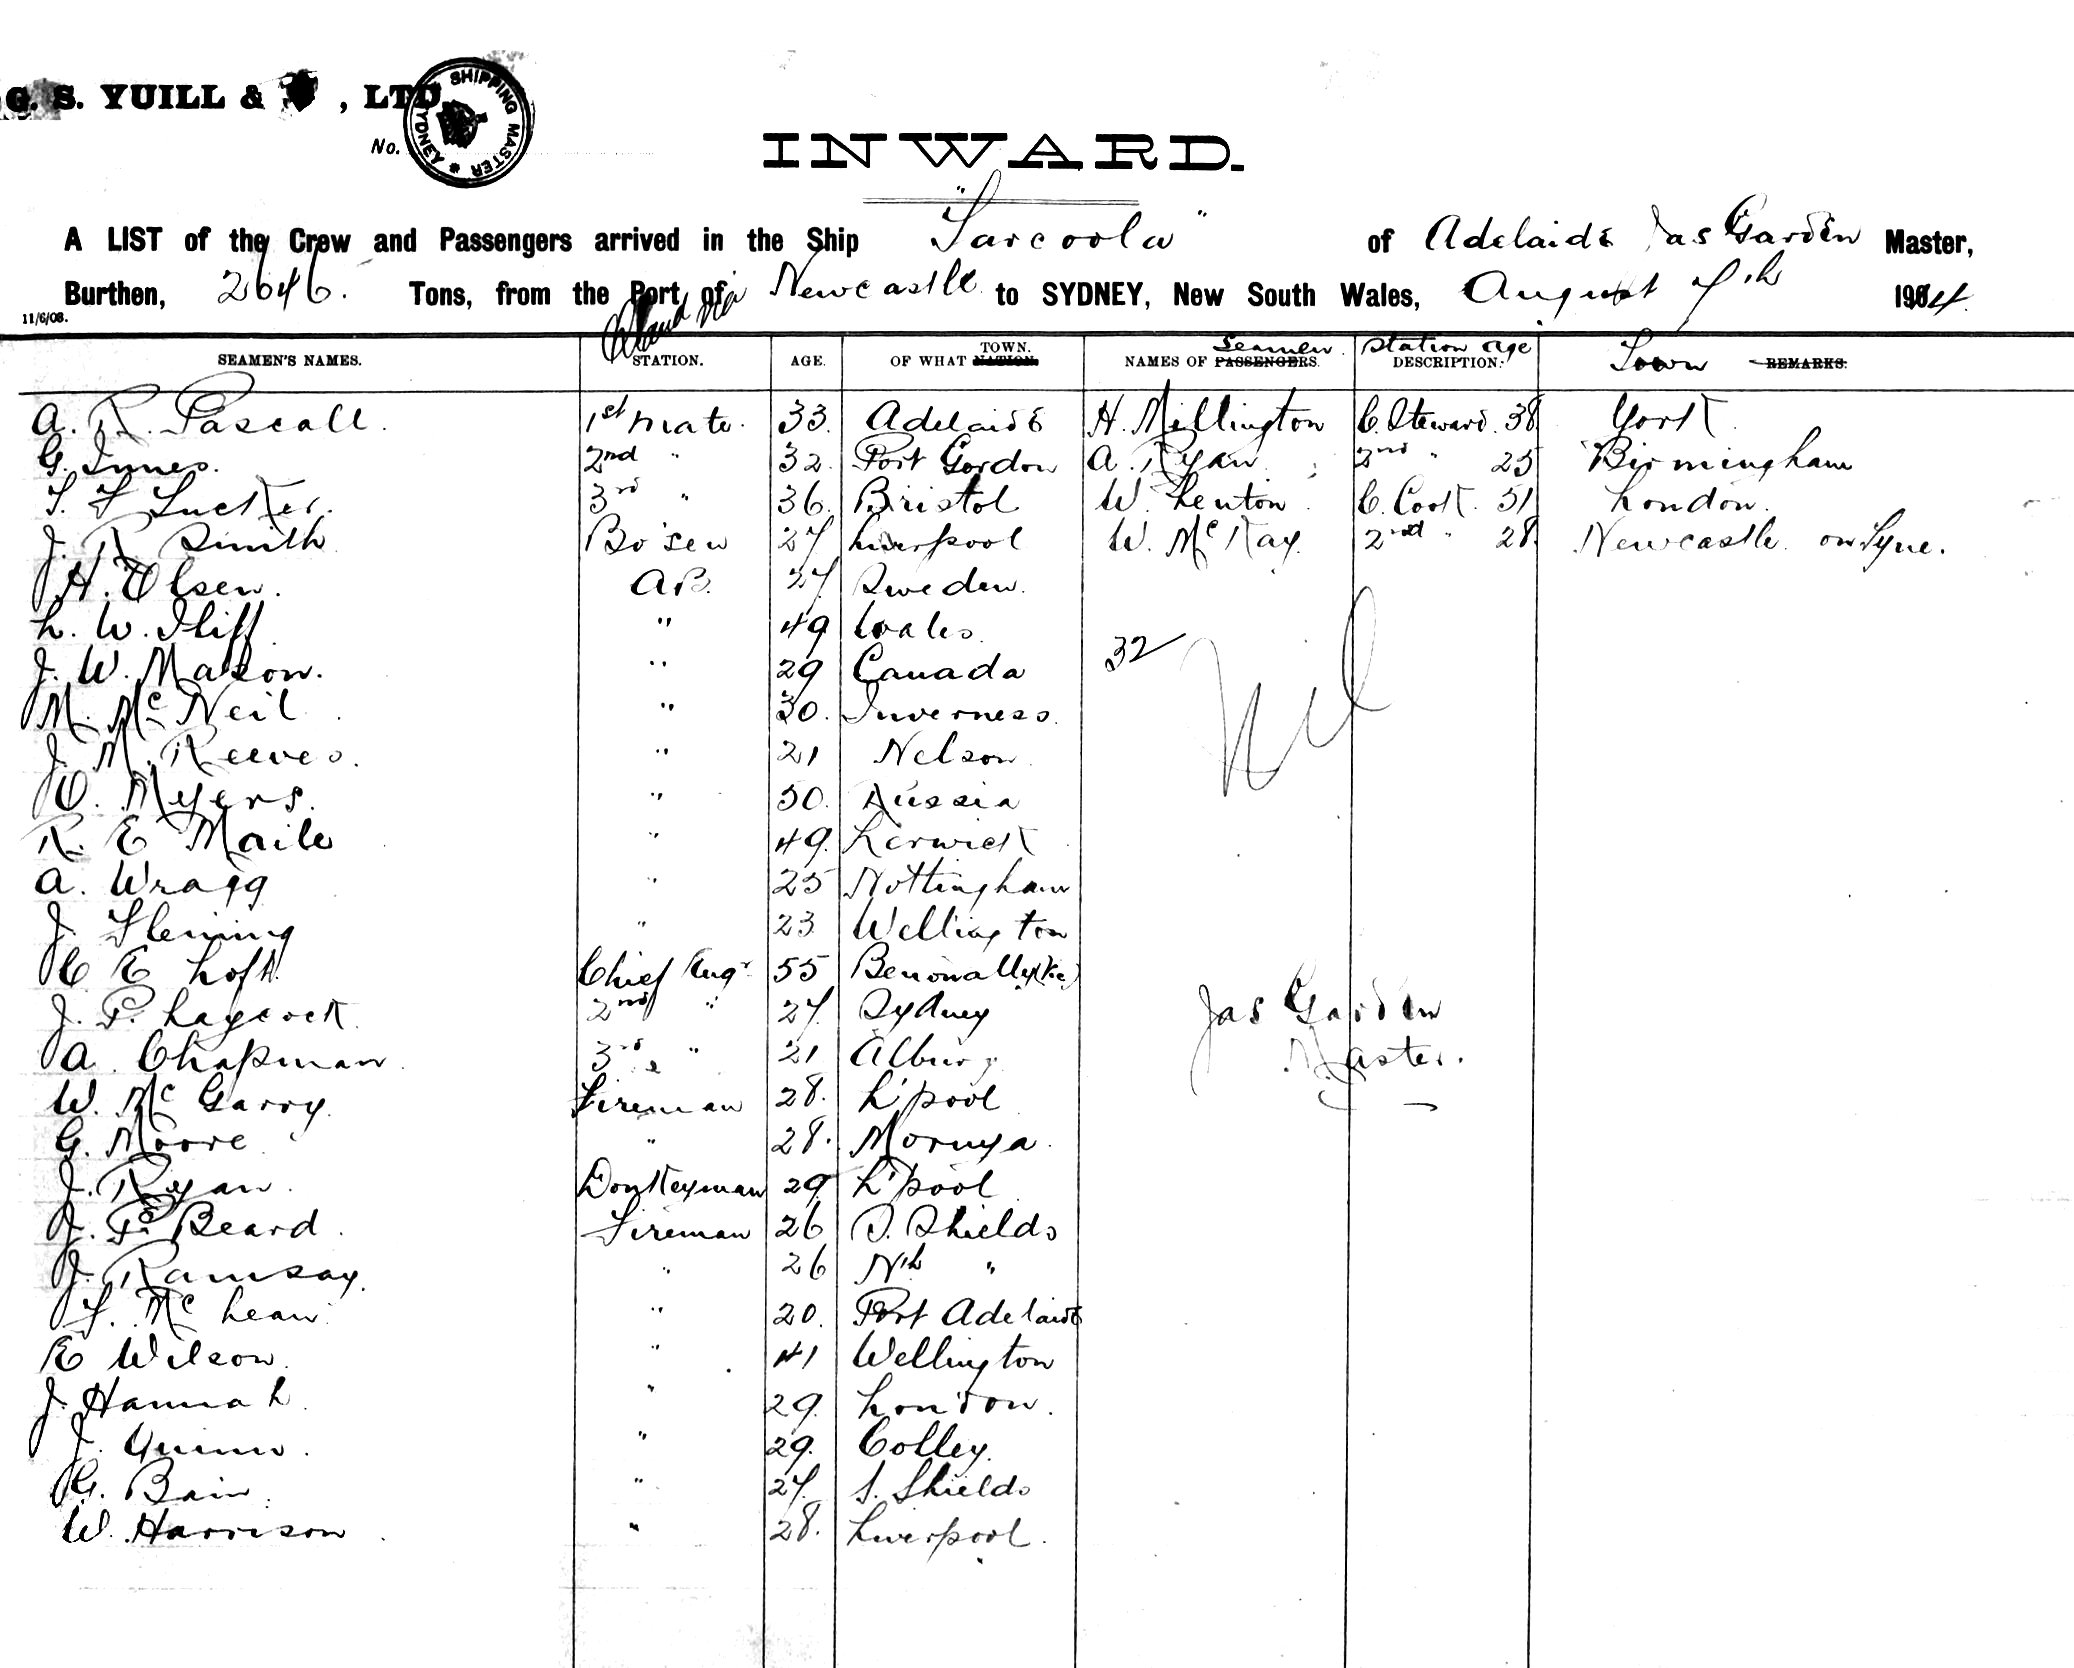 G. S. YUILL & , LTD
SYDNEY SHIPPING MASTER
No.
INWARD.
A LIST of the Crew and Passengers arrived in the Ship "Tarcoola" of Adelaide Jas Garden Master,
Burthen, 2646. Tons, from the Port of via Newcastle to SYDNEY, New South Wales, August 7th 1914.
11/6/08.
SEAMEN'S NAMES. STATION. AGE. OF WHAT TOWN. NATION. NAMES OF Seamen PASSENGERS. Station age DESCRIPTION. Town REMARKS.
A. R. Pascall. 1st Mate. 33. Adelaide H. Millington C. Steward. 38 York
G. Innes. 2nd " 32. Port Gordon A. Ryan 2nd " 25 Birmingham
T. F. Tucker. 3rd " 36. Bristol W. Lenton. C. Cook. 51 London.
J. R. Smith Bo'sen 27 Liverpool W. McKay. 2nd " 28. Newcastle on Tyne.
H. Olsen. AB. 27 Sweden.
L. W. Iliff " 49 Wales.
J. W. Mason. " 29 Canada 32
M. McNeil " 30. Inverness. Nil
J. M. Reeves. " 21 Nelson
O. Myers. " 50. Russia
R. E Maile " 49. Lerwick
A. Wragg " 25 Nottingham
J. Fleming " 23 Wellington
C E Loft. Chief Engr 55 (Vic)
J. P. Laycock 2nd " 27. Sydney Jas Garden
A. Chapman. 3rd " 21 Albury Master.
W. McGarry. Fireman 28. L'pool
G. Moore " 28. Moruya.
J. Ryan. Donkeyman 29 L'pool
J. P. Beard. Fireman 26 S. Shields
J. Ramsay. " 26 Nth "
T. McLean. " 20. Port Adelaide
E Wilson. " 41 Wellington
J. Hannah. " 29. London.
J. Quinn. " 29. Colley.
G. Bain. " 27. S. Shields
W. Harrison. " 28. Liverpool.